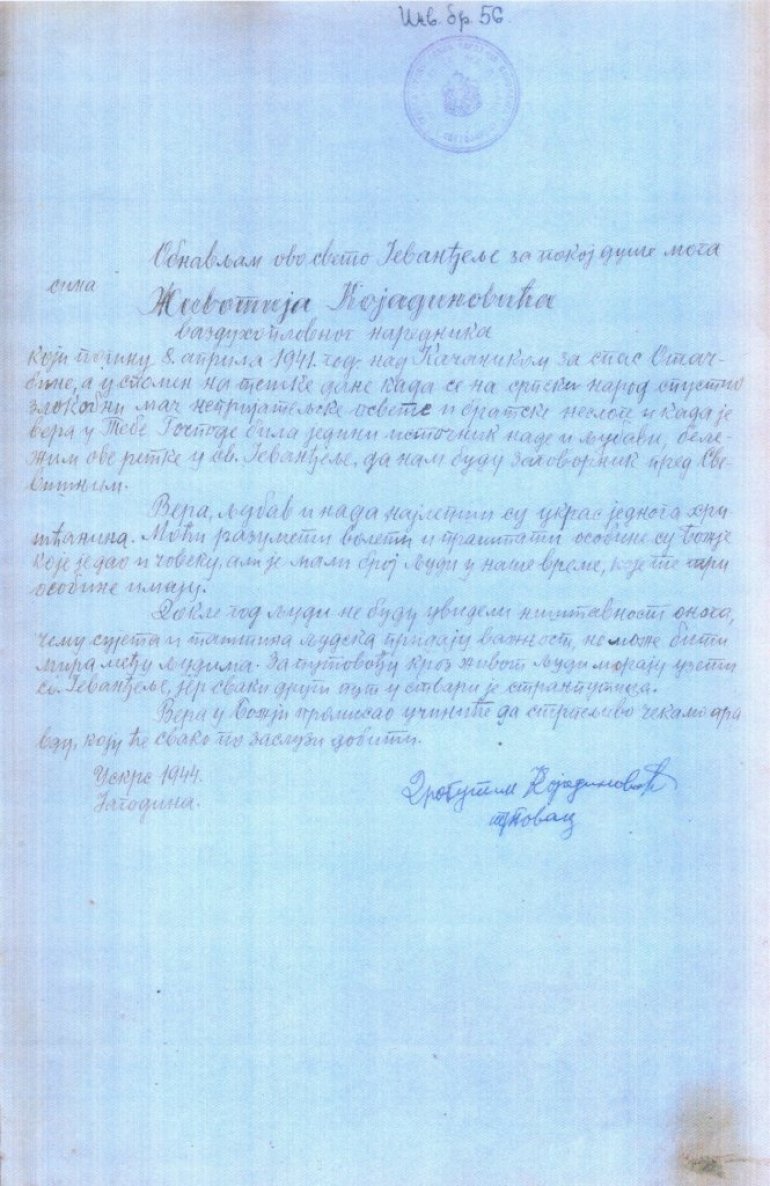 Инв. бр. 56
Обнављам ово свето Јеванђеље за покој душе мога
сина
Животија Којадиновића
ваздухопловног наредника
који погину 8. априла 1941. год. над Качаником за спас Отаџ-
бине, а у спомен на тешке дане када се на српски народ спустио
злокобни мач непријатељске освете и братске неслоге и када је
вера у Тебе Господе била једини источник наде и љубави, беле-
жим ове ретке у св. Јеванђеље, да нам буду заговорник пред Све-
вишњим.
Вера, љубав и нада најлепши су украс једнога хри-
шћанина. Моћи разумети волети и праштати особине су Божје
које је дао и човеку, али је мали број људи у наше време, које те три
особине имају.
Докле год људи не буду увидели ништавност онога,
чему сујета и таштина људска придају важност, не може бити
мира међу људима. За путовођу кроз живот људи морају узети
св. Јеванђеље, јер сваки други пут у ствари је странпутица.
Вера у Божји промисао учиниће да стрпљиво чекамо пра
вду, коју ће свако по заслузи добити.
Ускрс 1944.
Јагодина.
Којадиновић